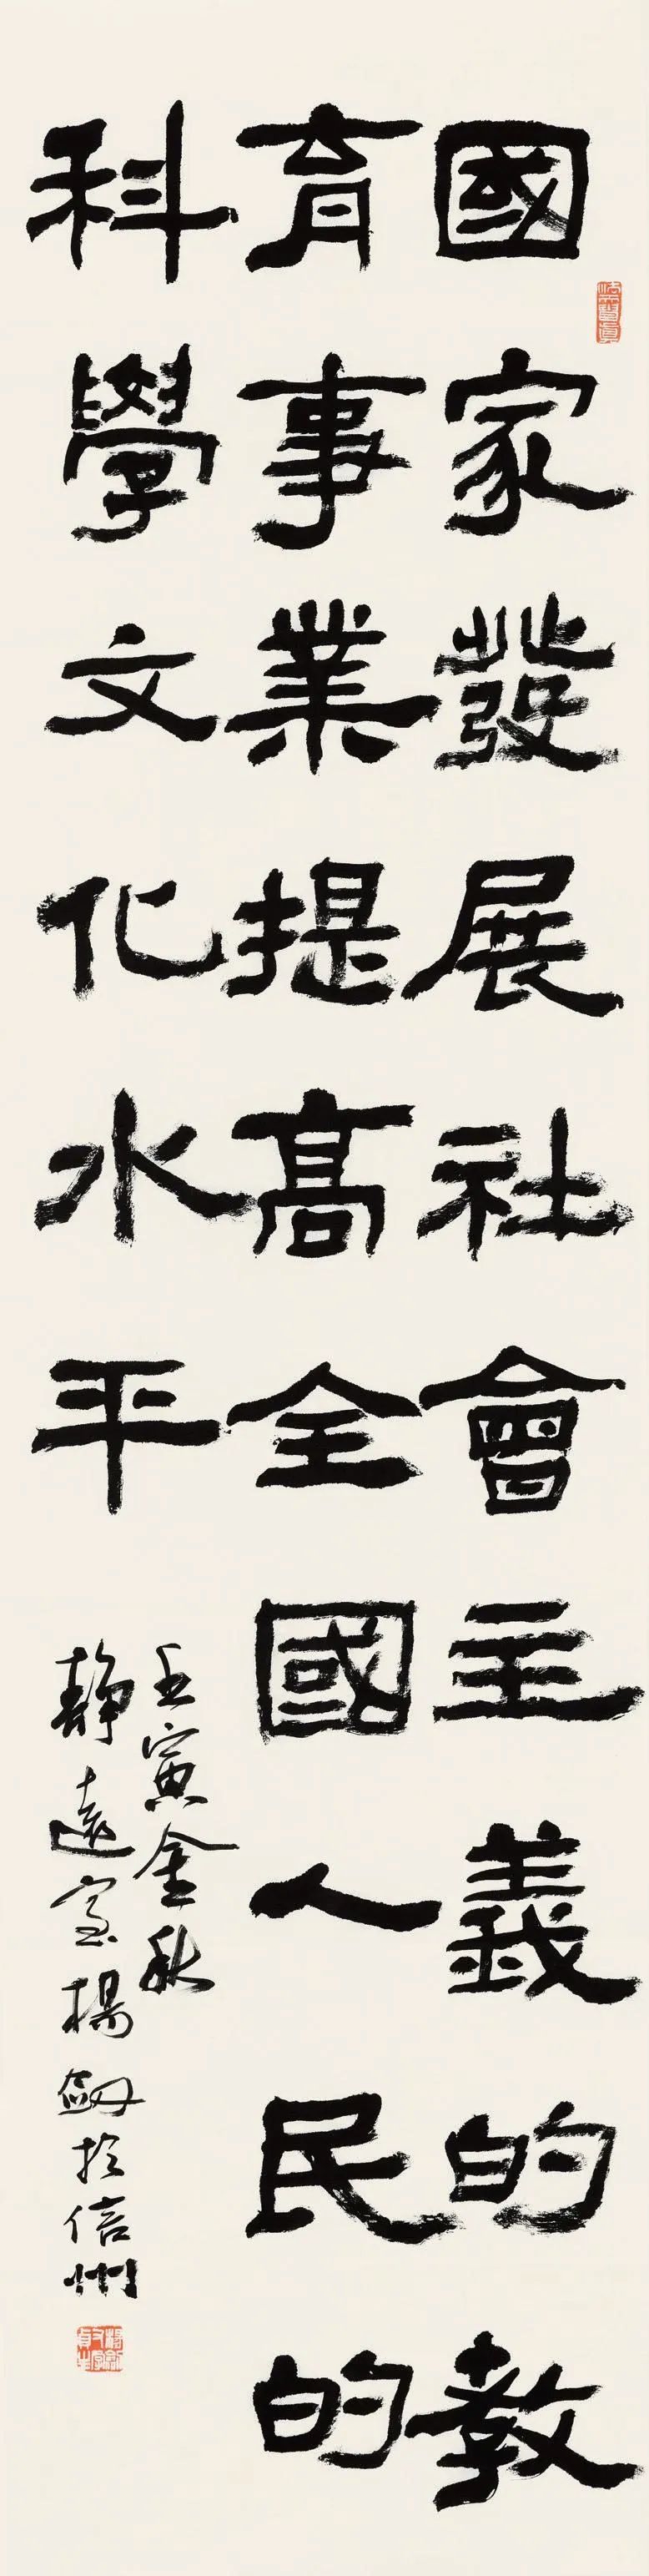 國家發展社會主義的教
育事業提高全國人民的
科學文化水平
壬寅金秋
靜遠室楊劔於信州